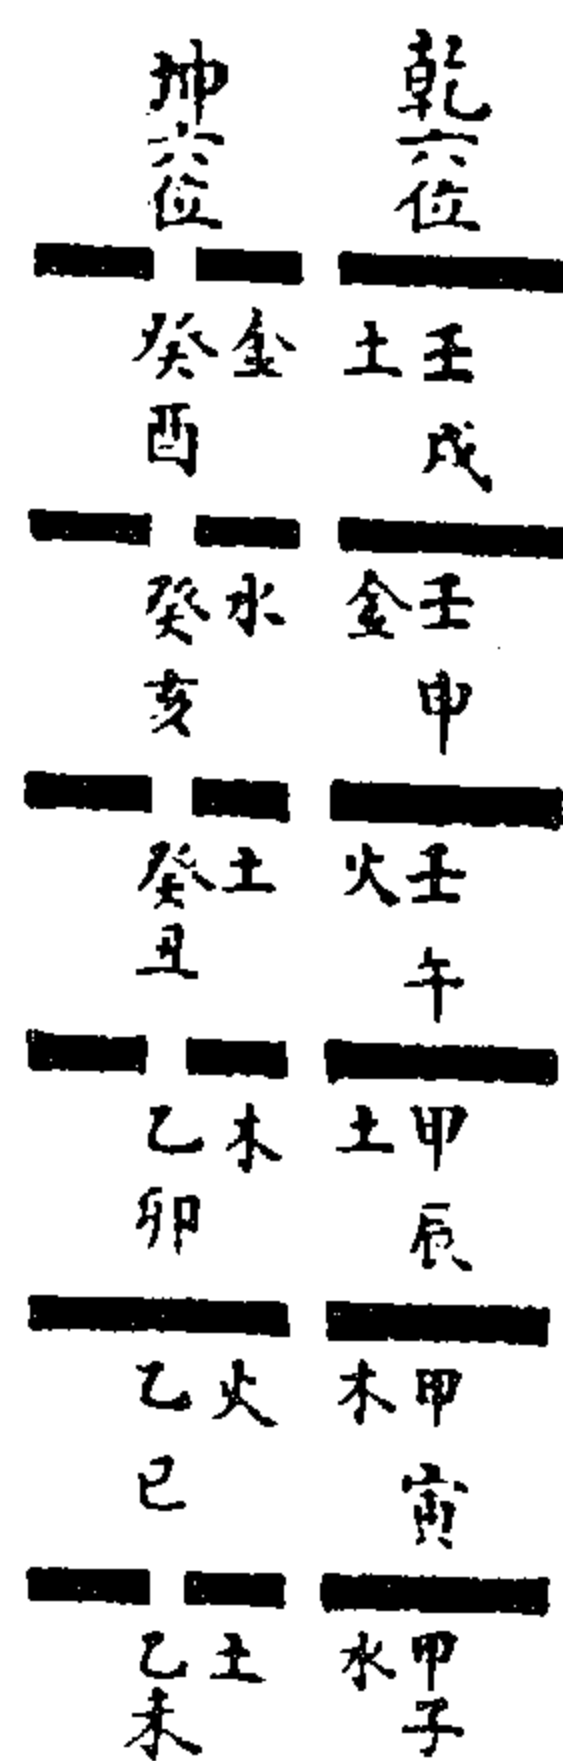 乾六位
壬戌土
壬申金
壬午火
甲辰土
甲寅木
甲子水
坤六位
癸酉金
癸亥水
癸丑土
乙卯木
乙巳火
乙未土